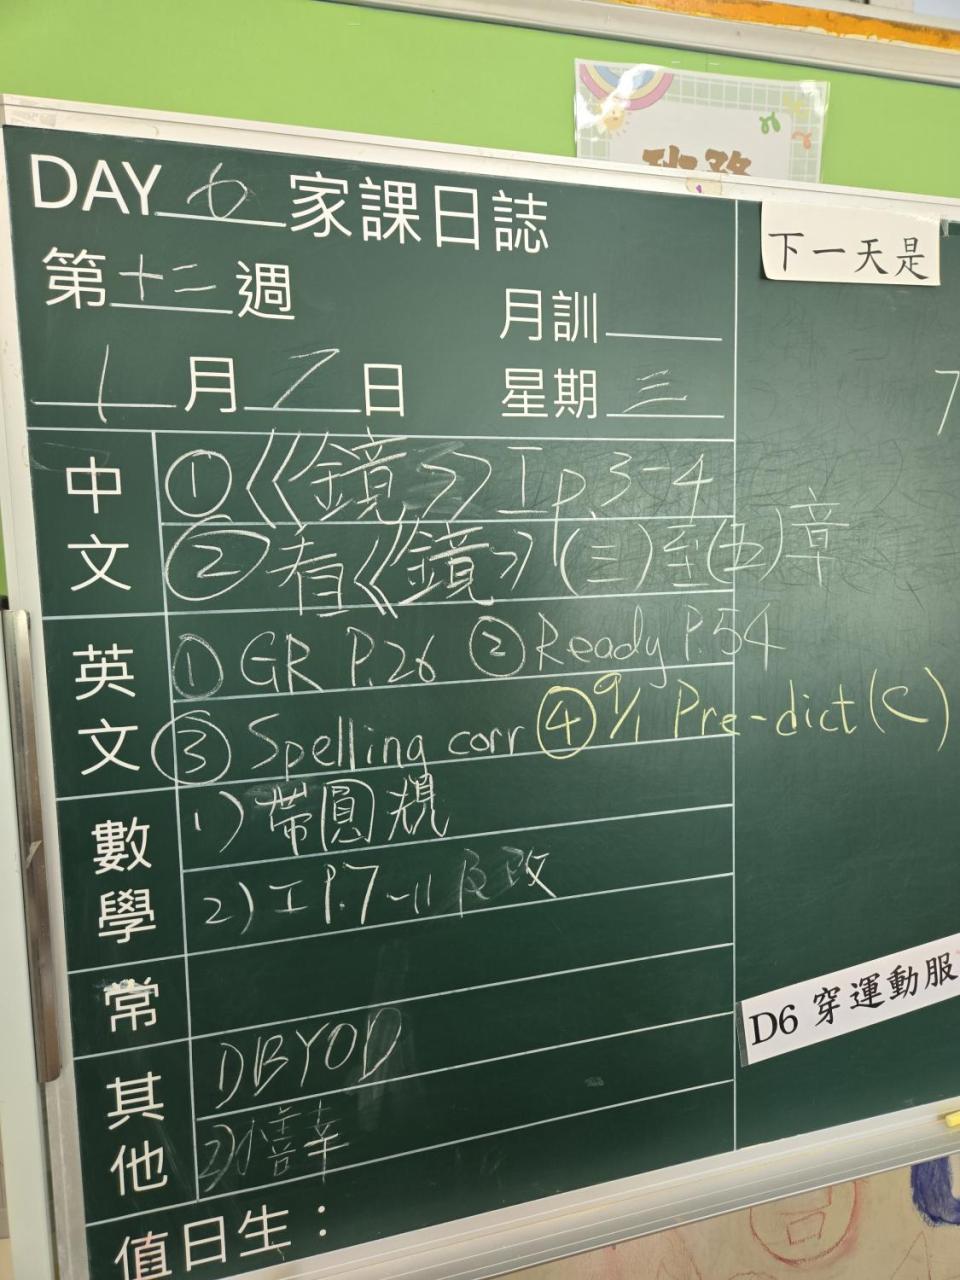 DAY 六 家課日誌
第十二週
月訓
1月7日 星期三
下一天是
7
中文
①《鏡》工p3-4
②看《鏡》(三)至(五)章
英文
①GR P.26 ②Ready P.54
③Spelling corr ④9/1 Pre-dict(C)
數學
1)帶圓規
2)工P.7~11 改
常
其他
1)BYOD
2)
D6 穿運動服
值日生：